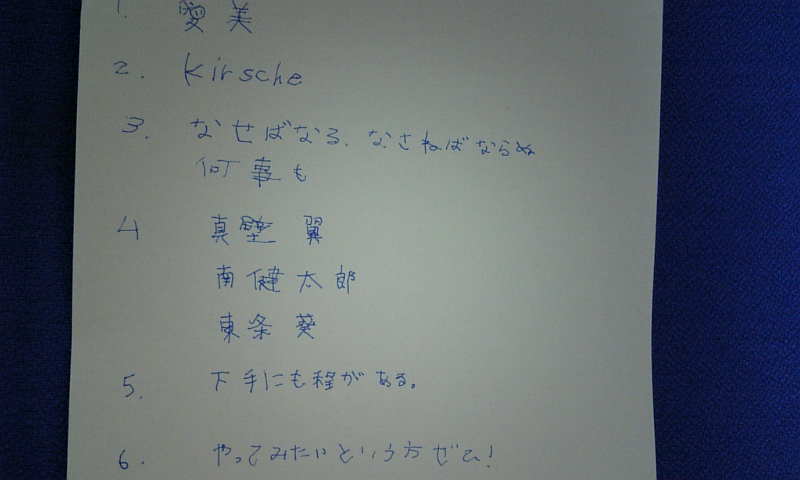 1. 愛美
2. Kirsche
3. なせばなる、なさねばならぬ
何事も
4 真壁 翼
南健太郎
東条 葵
5. 下手にも程がある。
6. やってみたいという方ぜひ!